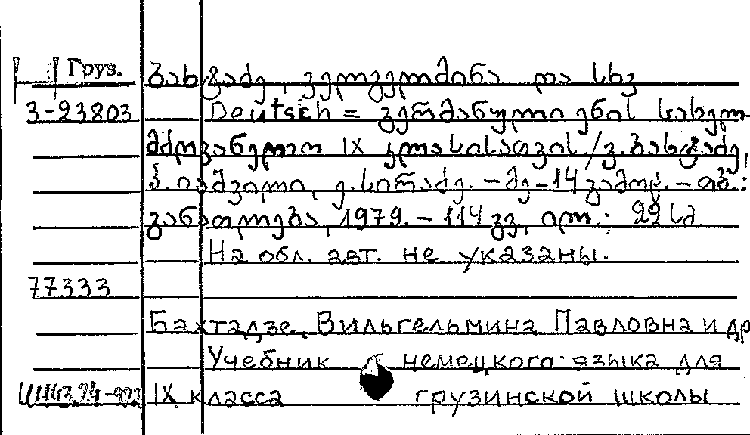 Груз. ბახტაძე, ველგელმინა და სხვ
3-23803 Deutsch = გერმანული ენის სახელ-
მძღვანელო IX კლასისათვის / ვ. ბახტაძე,
პ. იაშვილი, ე. სირაძე. - მე-14 გამოც. - თბ.:
განათლება, 1979. - 114 გვ, ილ.: 22 სმ
На обл. авт. не указаны.
77333
Бахтадзе, Вильгельмина Павловна и др
Учебник немецкого языка для
IX класса грузинской школы